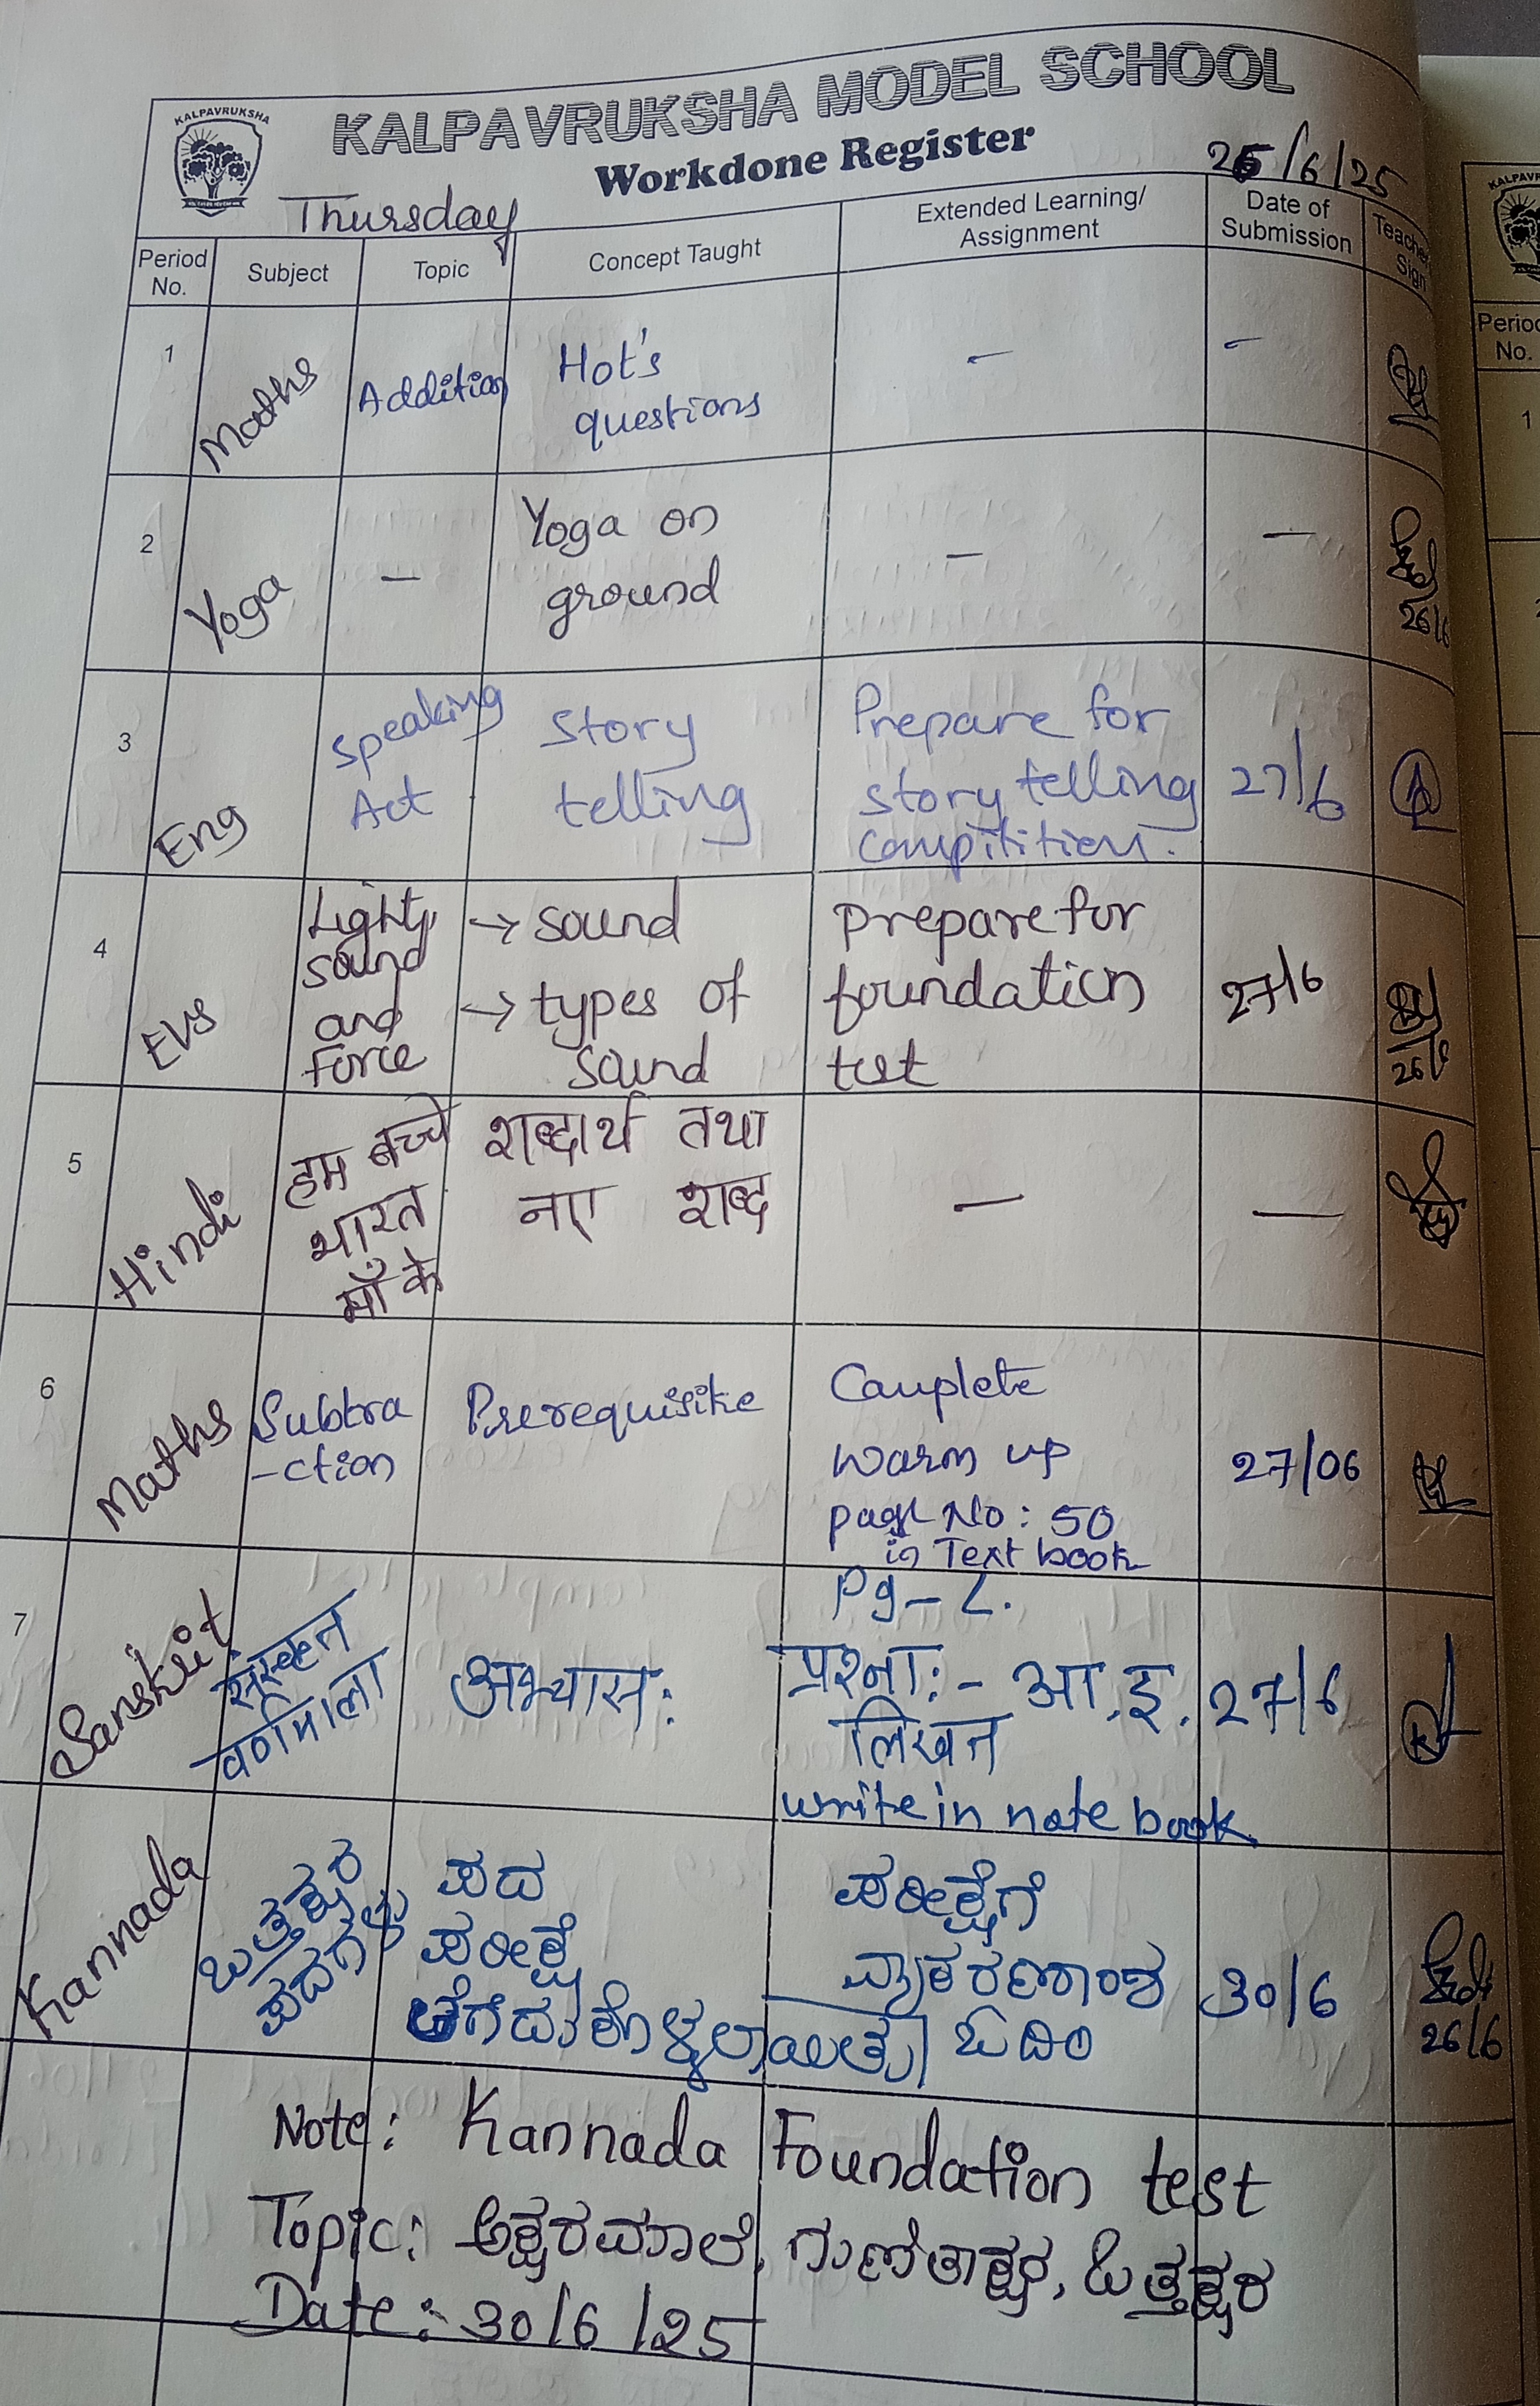 KALPAVRUKSHA
KALPAVRUKSHA MODEL SCHOOL
Workdone Register
26/6/25
Thursday
Period No.
Subject
Topic
Concept Taught
Extended Learning/ Assignment
Date of Submission
Teacher Sign
1
Maths
Addition
Hot's
questions
-
-
2
Yoga
-
Yoga on
ground
-
-
26/6
3
Eng
Speaking
Act
Story
telling
Prepare for
story telling
compitition.
27/6
4
EVS
Light,
sound
and
Force
→ sound
→ types of
sound
prepare for
foundation
test
27/6
26/6
5
Hindi
हम बच्चे
भारत
माँ के
शब्दार्थ तथा
नए शब्द
-
-
6
Maths
Subtra
-ction
Prerequisite
Complete
warm up
page No: 50
in Text book
27/06
7
Sanskrit
संस्कृत
वर्णमाला
अभ्यासः
Pg-
प्रश्नाः- आ.इ.
लिखत
write in note book
27/6
Kannada
ಒತ್ತಕ್ಷರ
ಪದಗಳು
ಪದ
ಪರೀಕ್ಷೆ
ತೆಗೆದುಕೊಳ್ಳಲಾಯಿತು
ಪರೀಕ್ಷೆಗೆ
ವ್ಯಾಕರಣಾಂಶ
ಓದಿರಿ
30/6
26/6
Note: Kannada Foundation test
Topic: ಅಕ್ಷರಮಾಲೆ, ಗುಣಿತಾಕ್ಷರ, ಒತ್ತಕ್ಷರ
Date: 30/6/25
KALPAVR
Period
No.
1